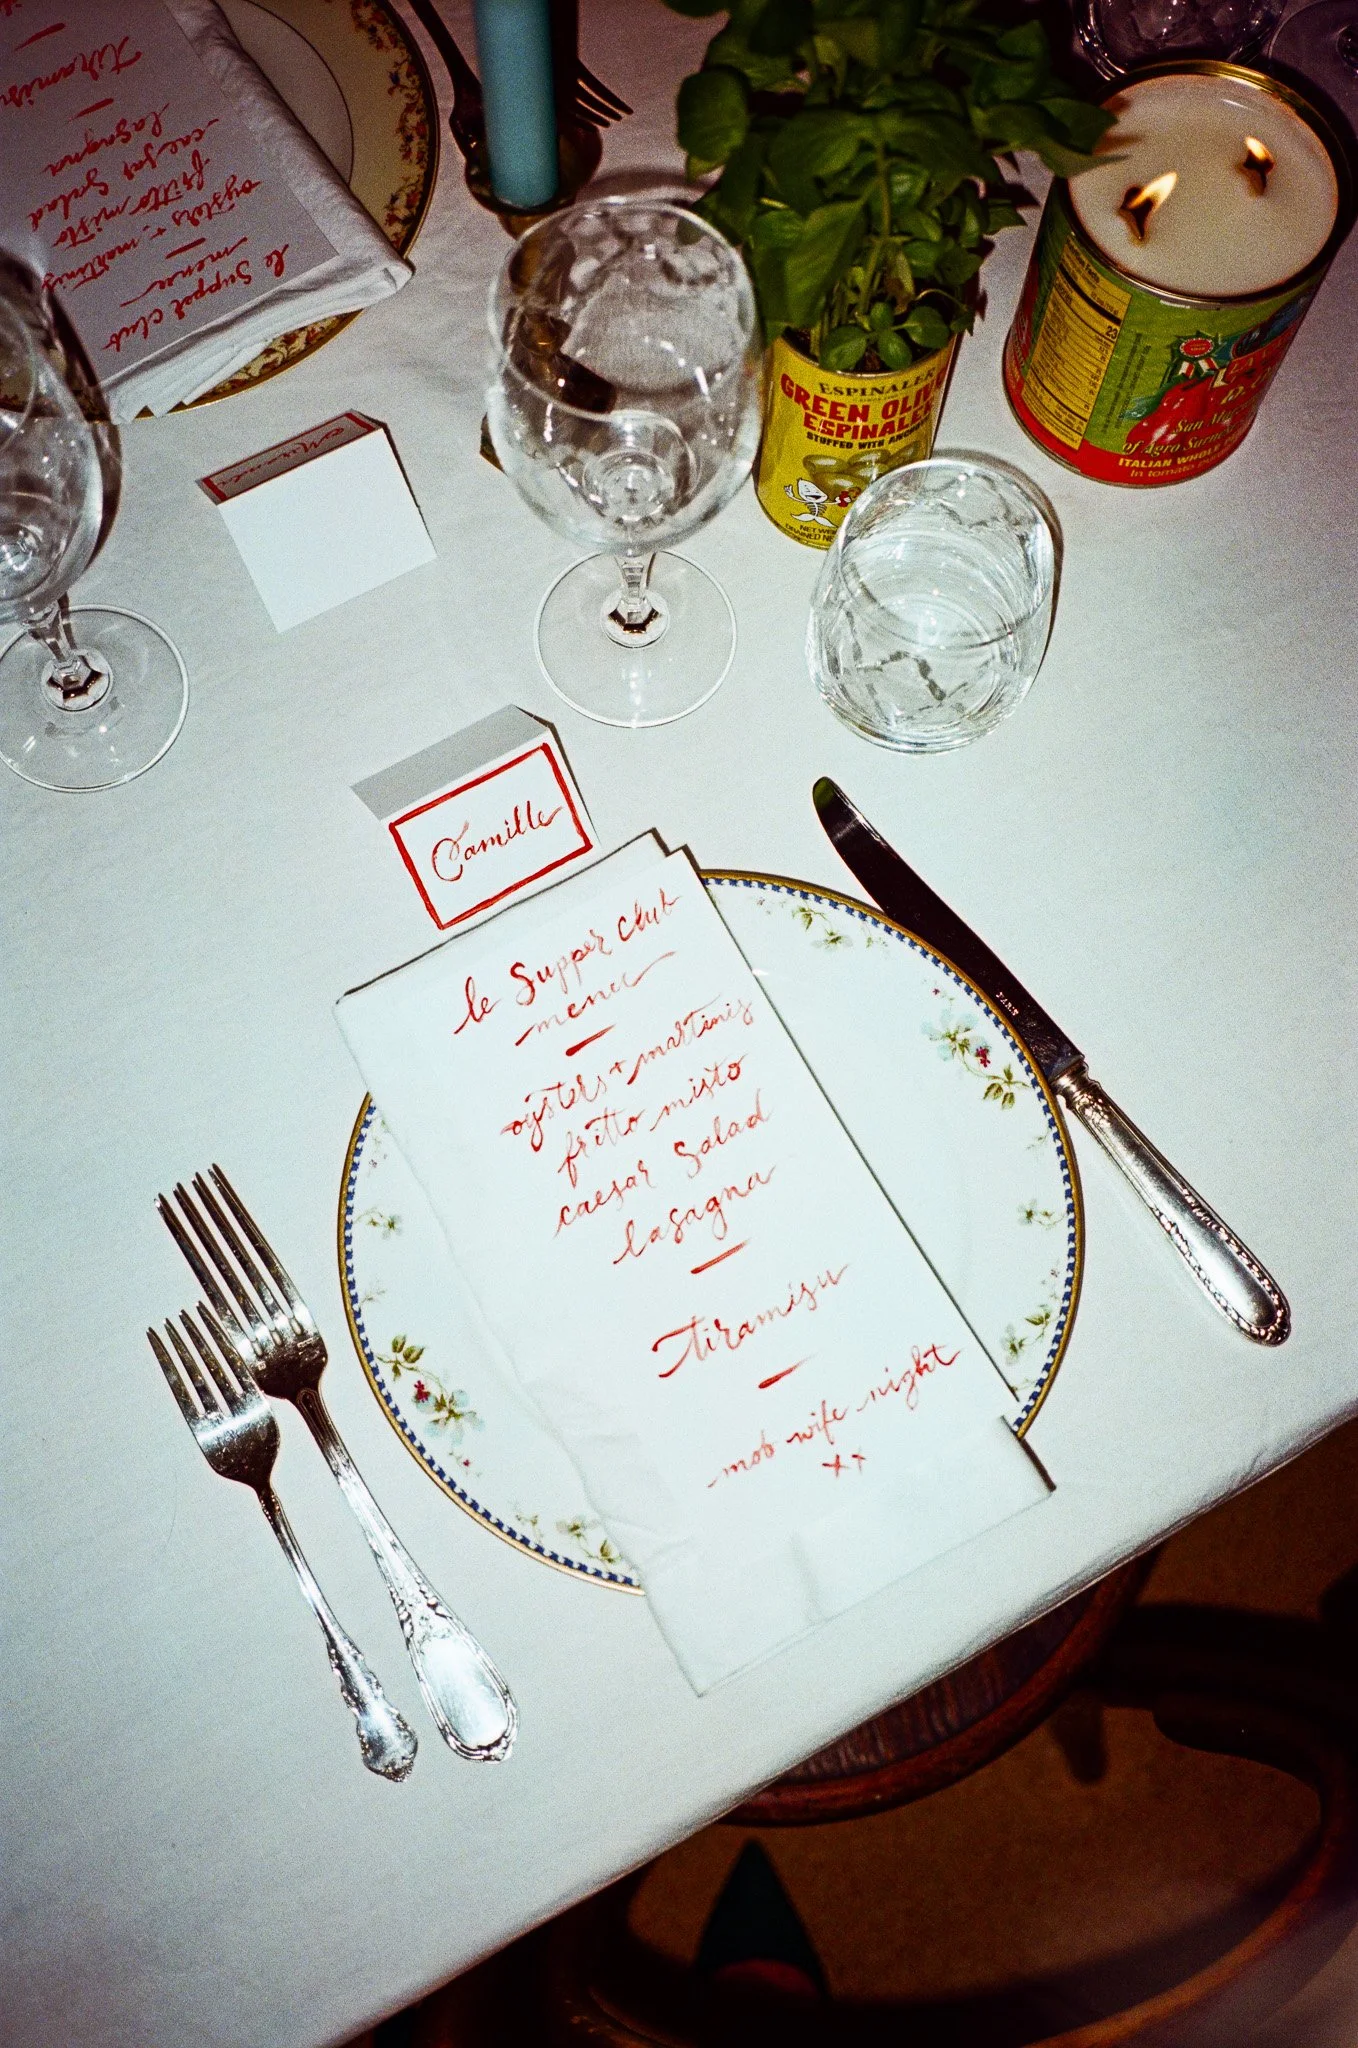 le Supper Club
menu
oysters + martinis
fritto misto
caesar Salad
lasagna
Tiramisu
le Supper Club
menu
oysters + martinis
fritto misto
caesar Salad
lasagna
tiramisu
mob wife night
xx
Camille
ESPINALER
GREEN OLIVE
ESPINALER
STUFFED WITH
NET
DRAINED
23
San
of Agro
ITALIAN WHOLE
In tomato
PARIS